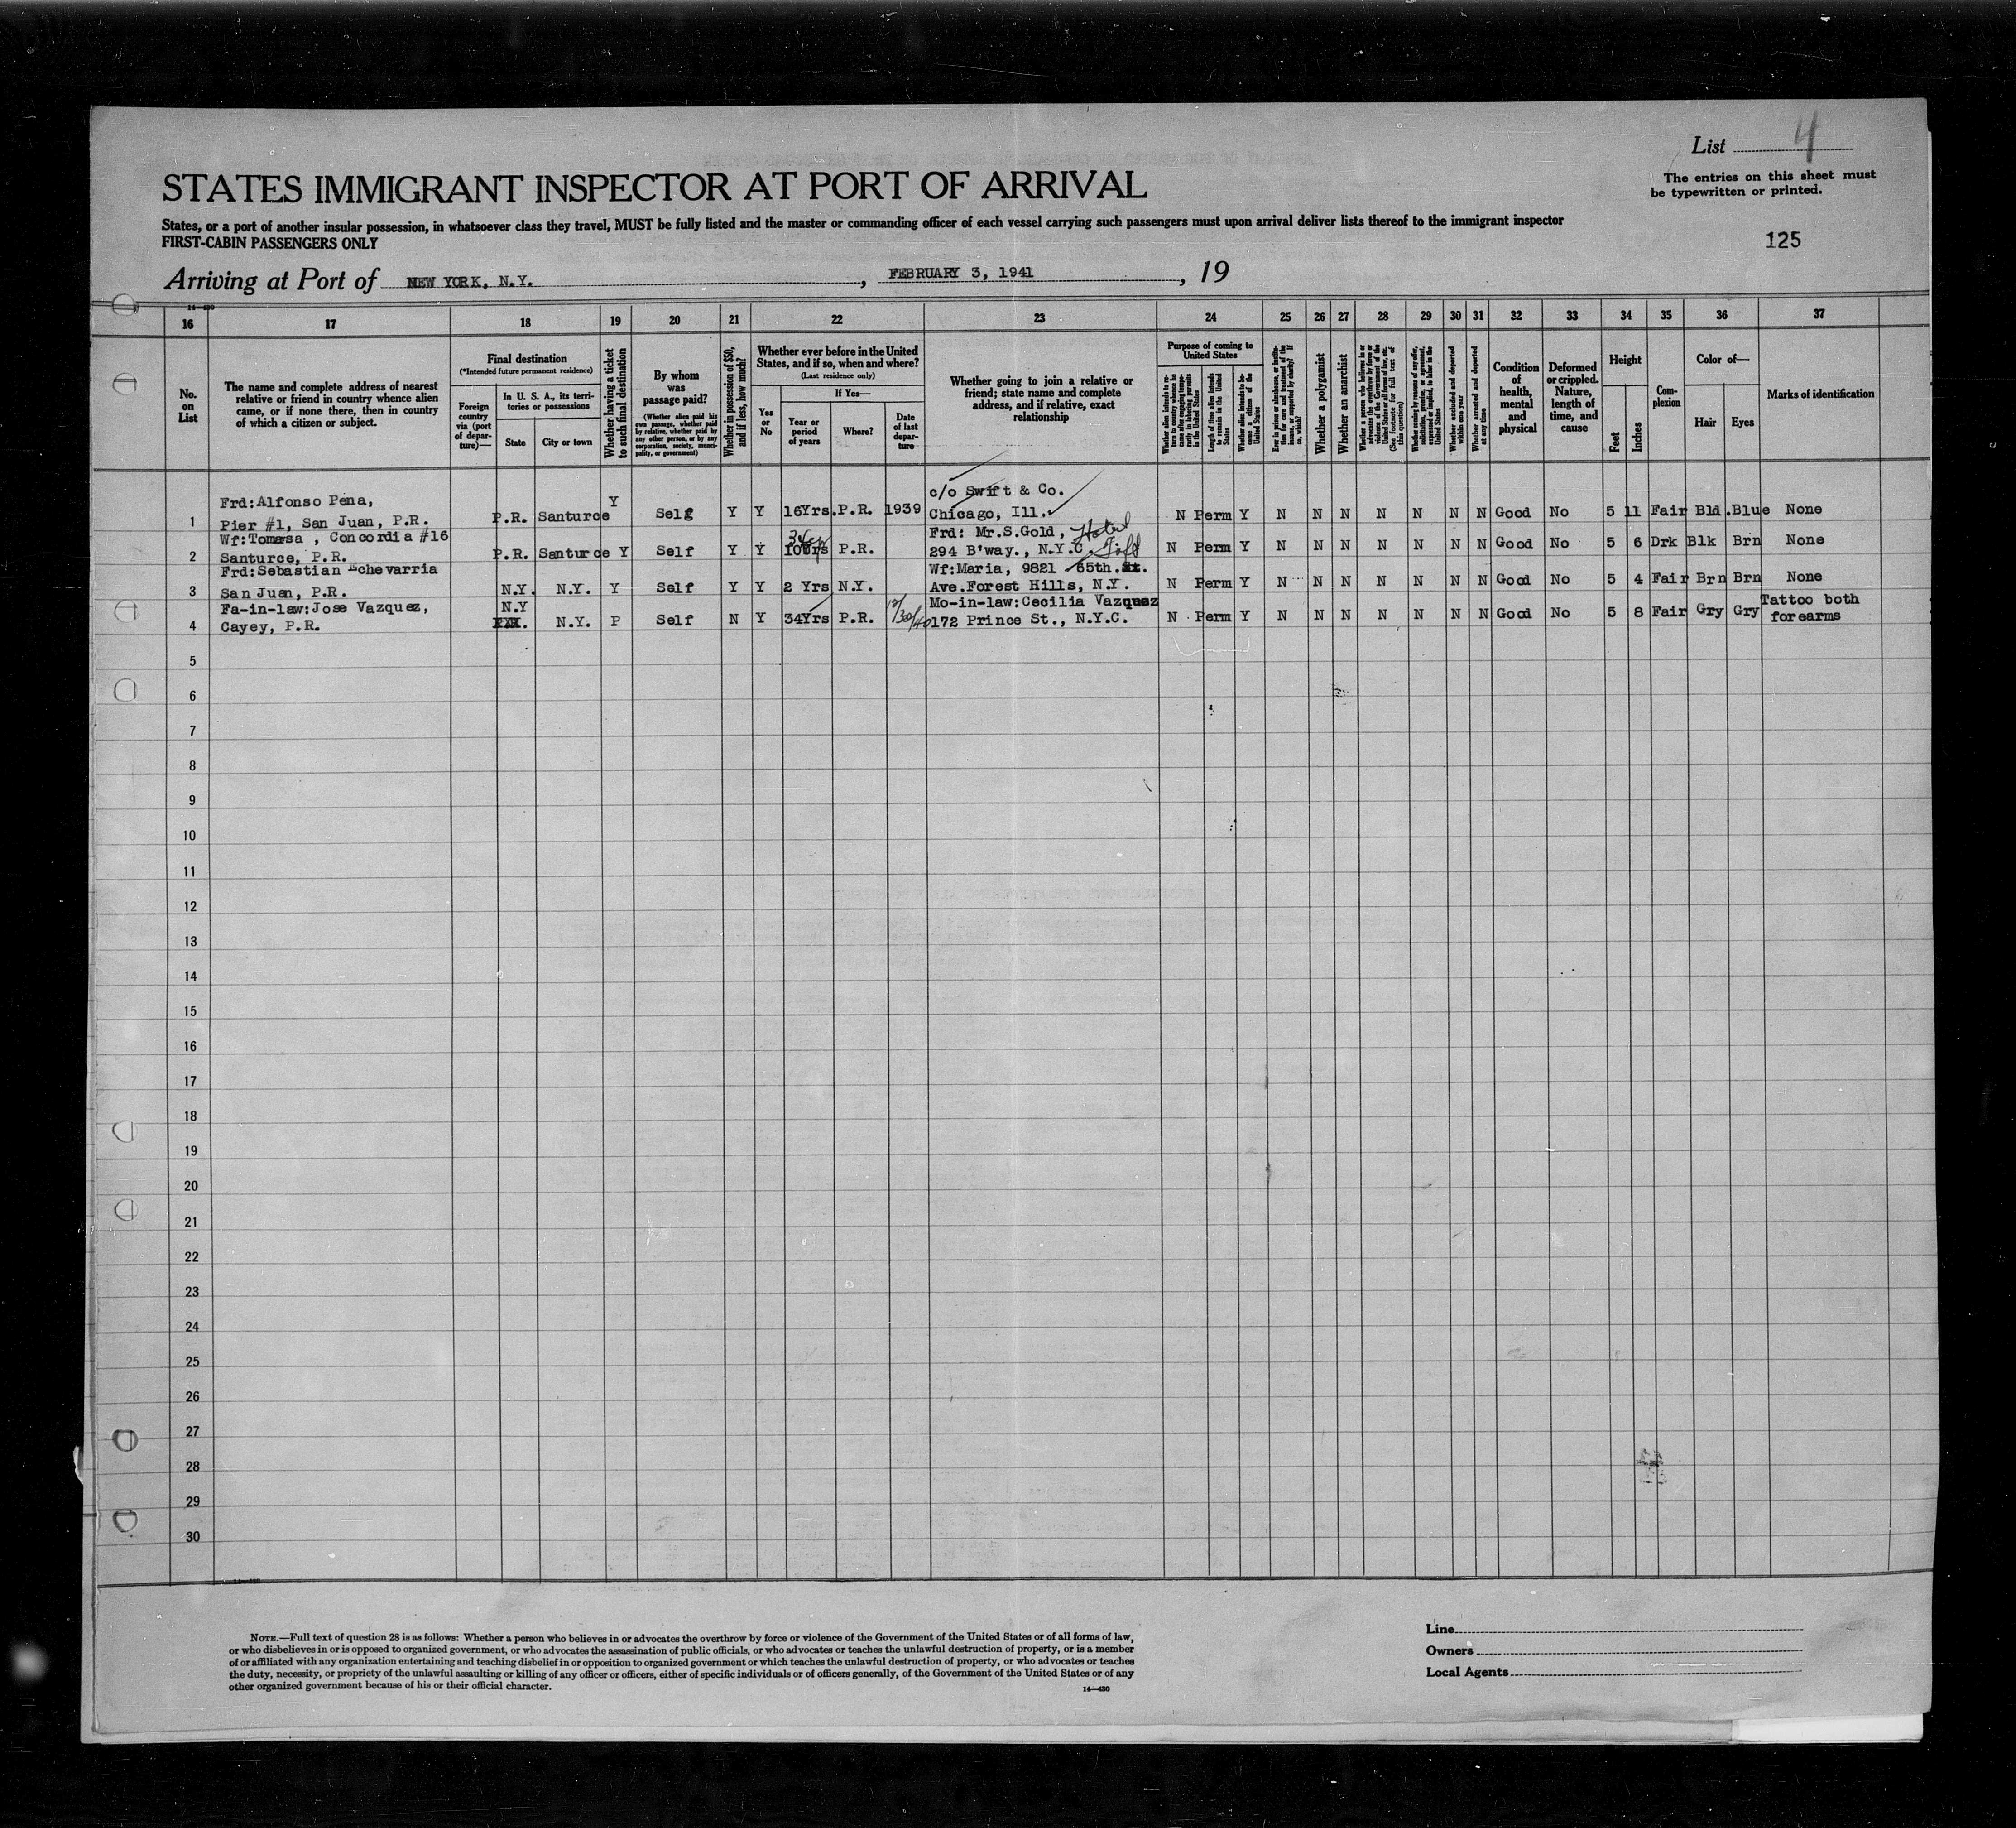 List 4
The entries on this sheet must
be typewritten or printed.
STATES IMMIGRANT INSPECTOR AT PORT OF ARRIVAL
States, or a port of another insular possession, in whatsoever class they travel, MUST be fully listed and the master or commanding officer of each vessel carrying such passengers must upon arrival deliver lists thereof to the immigrant inspector
FIRST-CABIN PASSENGERS ONLY
125
Arriving at Port of NEW YORK, N.Y. , FEBRUARY 3, 1941 , 19
14—430
16 17 18 19 20 21 22 23 24 25 26 27 28 29 30 31 32 33 34 35 36 37
No.
on
List
The name and complete address of nearest
relative or friend in country whence alien
came, or if none there, then in country
of which a citizen or subject.
Final destination
(*Intended future permanent residence)
Foreign
country
via (port
of depar-
ture)—
In U. S. A., its terri-
tories or possessions
State
City or town
Whether having a ticket
to such final destination
By whom
was
passage paid?
(Whether alien paid his
own passage, whether paid
by relative, whether paid by
any other person, or by any
corporation, society, munici-
pality, or government)
Whether in possession of $50,
and if less, how much?
Whether ever before in the United
States, and if so, when and where?
(Last residence only)
Yes
or
No
If Yes—
Year or
period
of years
Where?
Date
of last
depar-
ture
Whether going to join a relative or
friend; state name and complete
address, and if relative, exact
relationship
Purpose of coming to
United States
Length of time alien intends
to remain in the United
States
Whether alien intends to be-
come a citizen of the
United States
Whether a polygamist
Whether an anarchist
Whether excluded and deported
within one year
Whether arrested and deported
at any time
Condition
of
health,
mental
and
physical
Deformed
or crippled.
Nature,
length of
time, and
cause
Height
Feet
Inches
Com-
plexion
Color of—
Hair
Eyes
Marks of identification
Frd:Alfonso Pena, Y c/o Swift & Co.
1 Pier #1, San Juan, P.R. P.R. Santurce Self Y Y 16Yrs. P.R. 1939 Chicago, Ill. N Perm Y N N N N N N N Good No 5 11 Fair Bld. Blue None
Wf:Tomasa , Concordia #16 Frd: Mr.S.Gold, Hotel
2 Santurce, P.R. P.R. Santurce Y Self Y Y P.R. 294 B'way., N.Y.C. N Perm Y N N N N N N N Good No 5 6 Drk Blk Brn None
Frd:Sebastian Echevarria Wf:Maria, 9821 65th.
3 San Juan, P.R. N.Y. N.Y. Y Self Y Y 2 Yrs N.Y. Ave.Forest Hills, N.Y. N Perm Y N N N N N N N Good No 5 4 Fair Brn Brn None
Fa-in-law:Jose Vazquez, N.Y Mo-in-law:Cecilia Vazquez Tattoo both
4 Cayey, P.R. N.Y. P Self N Y 34Yrs P.R. 12/30/40 172 Prince St., N.Y.C. N Perm Y N N N N N N N Good No 5 8 Fair Gry Gry forearms
5
6
7
8
9
10
11
12
13
14
15
16
17
18
19
20
21
22
23
24
25
26
27
28
29
30
NOTE.—Full text of question 28 is as follows: Whether a person who believes in or advocates the overthrow by force or violence of the Government of the United States or of all forms of law,
or who disbelieves in or is opposed to organized government, or who advocates the assassination of public officials, or who advocates or teaches the unlawful destruction of property, or is a member
of or affiliated with any organization entertaining and teaching disbelief in or opposition to organized government or which teaches the unlawful destruction of property, or who advocates or teaches
the duty, necessity, or propriety of the unlawful assaulting or killing of any officer or officers, either of specific individuals or of officers generally, of the Government of the United States or of any
other organized government because of his or their official character.
14—430
Line
Owners
Local Agents